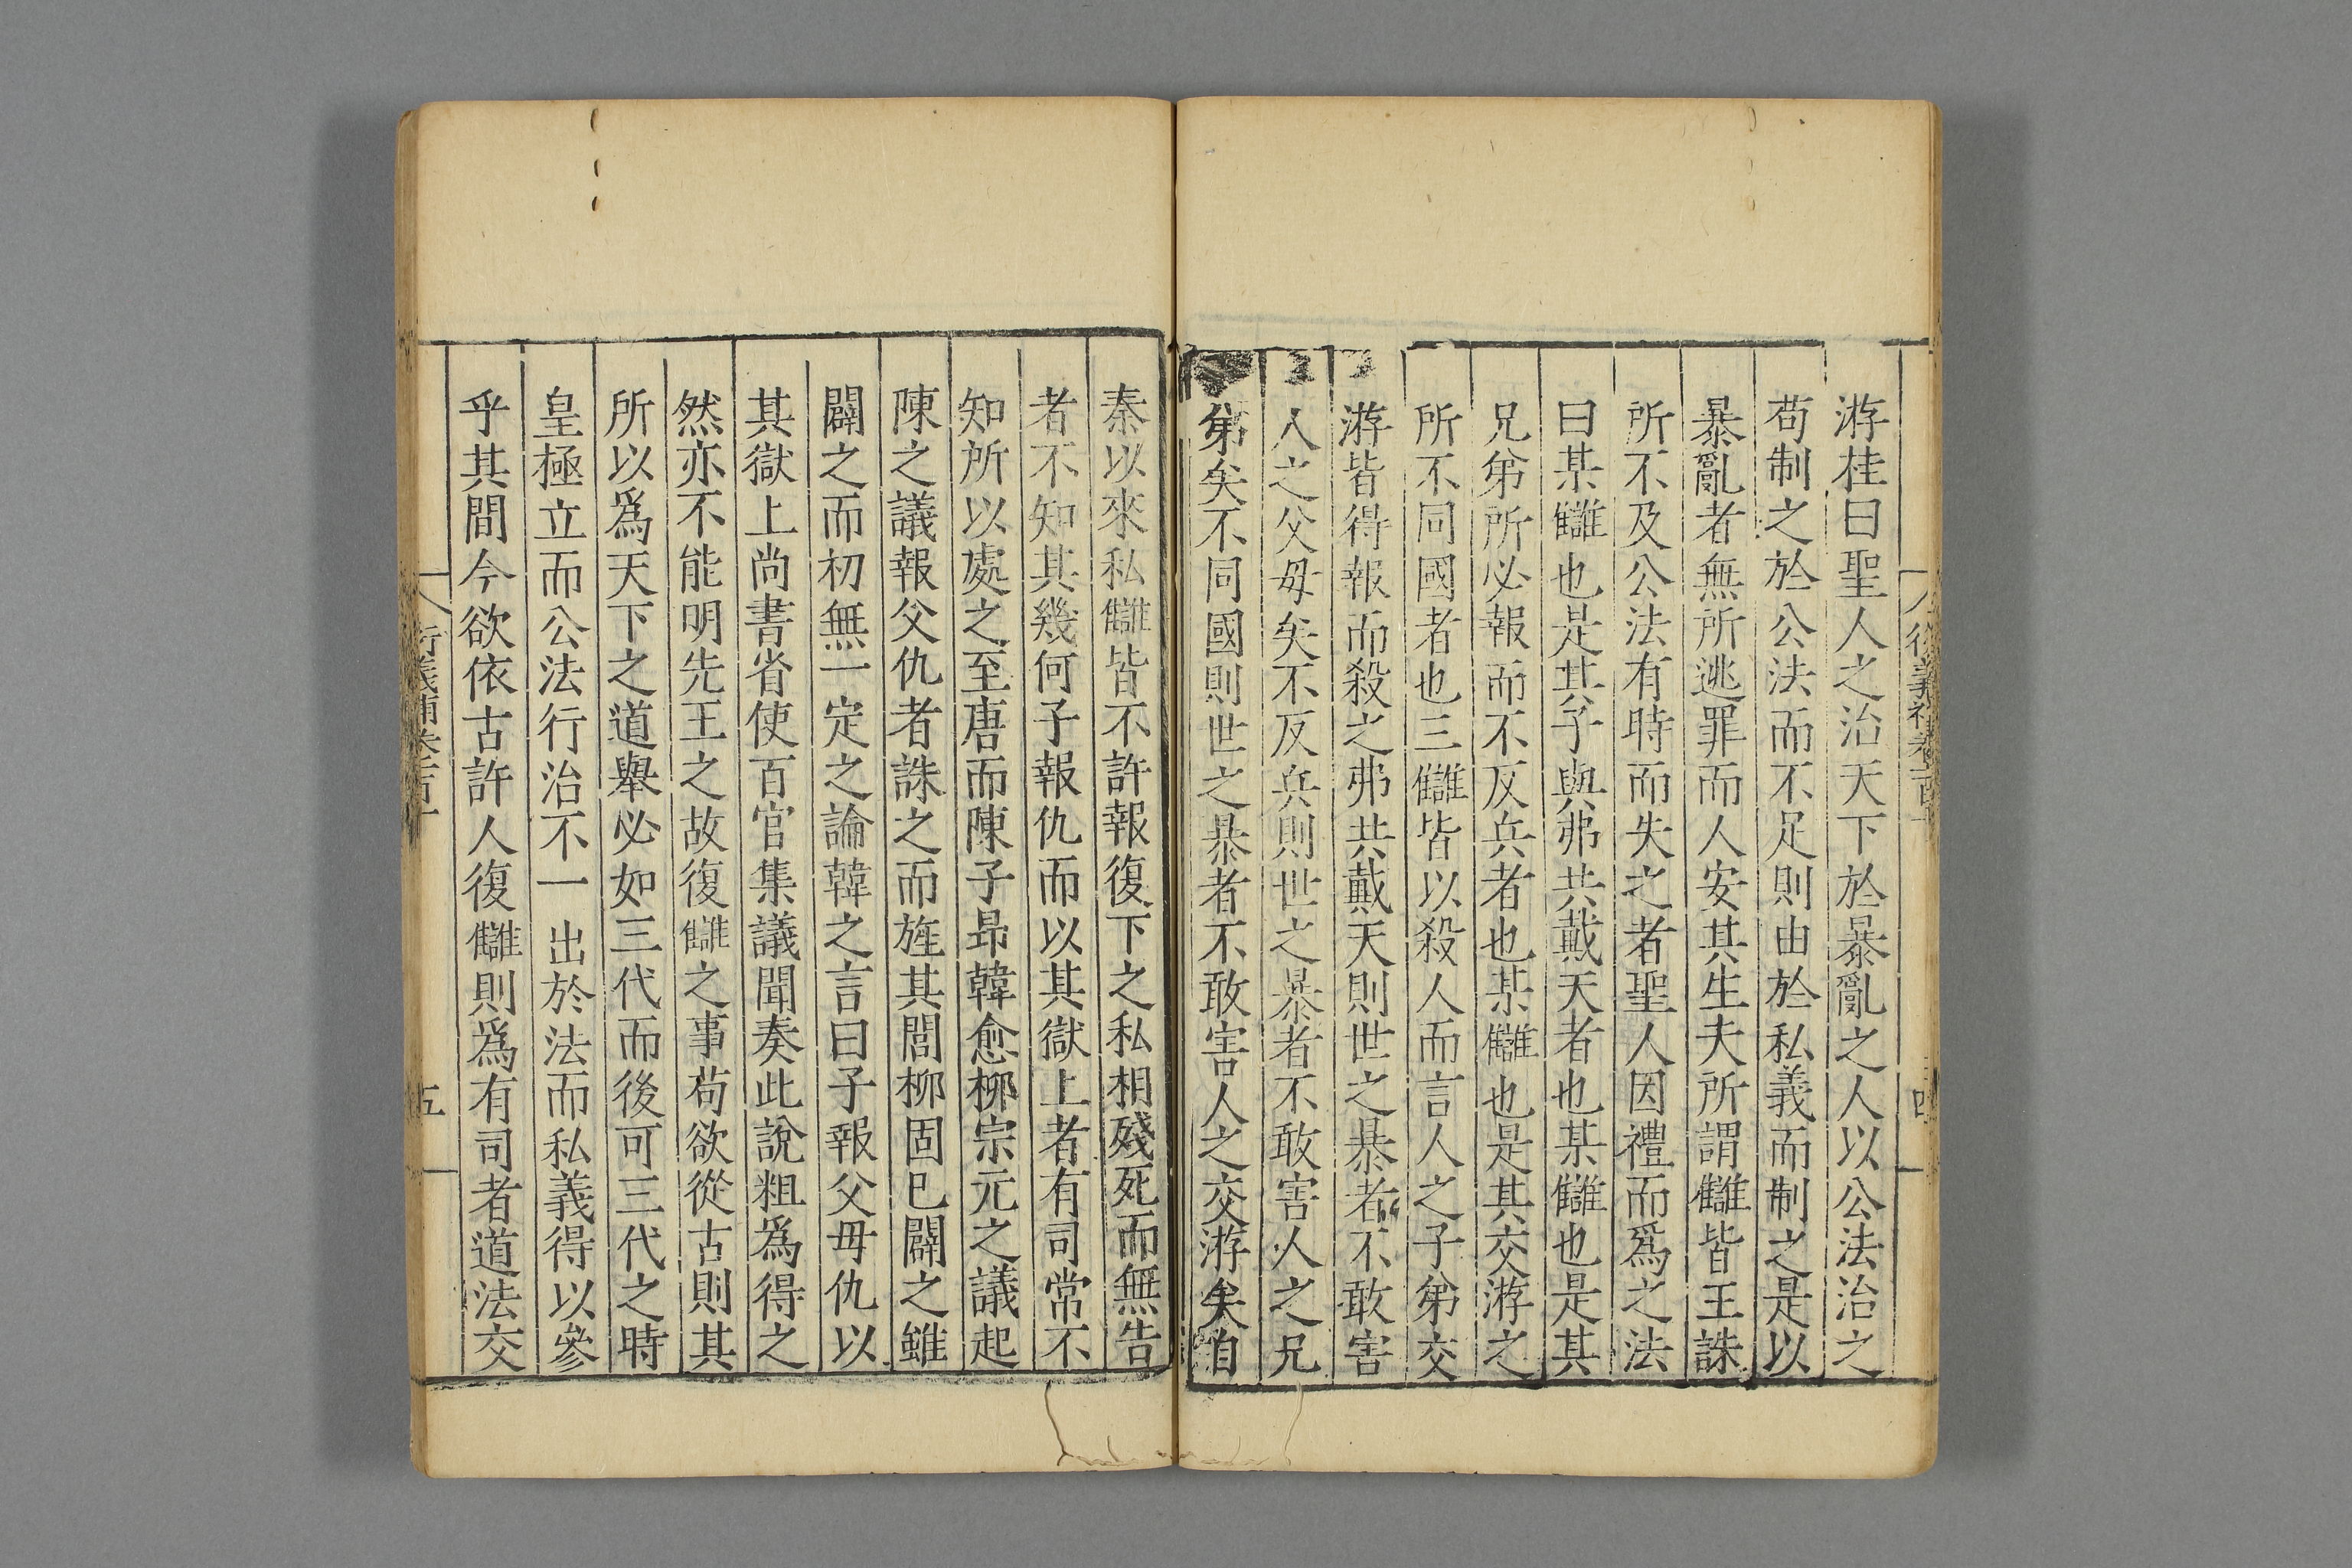 游桂曰聖人之治天下於暴亂之人以公法治之
苟制之於公法而不足則由於私義而制之是以
暴亂者無所逃罪而人安其生夫所謂讎皆王誅
所不及公法有時而失之者聖人因禮而爲之法
曰某讎也是其子與弗共戴天者也某讎也是其
兄弟所必報而不反兵者也某讎也是其交游之
所不同國者也三讎皆以殺人而言人之子弟交
游皆得報而殺之弗共戴天則世之暴者不敢害
人之父母矣不反兵則世之暴者不敢害人之兄
弟矣不同國則世之暴者不敢害人之交游矣自
秦以來私讎皆不許報復下之私相殘死而無告
者不知其幾何子報仇而以其獄上者有司常不
知所以處之至唐而陳子昻韓愈柳宗元之議起
陳之議報父仇者誅之而旌其閭柳固已闢之雖
闢之而初無一定之論韓之言曰子報父母仇以
其獄上尚書省使百官集議聞奏此說粗爲得之
然亦不能明先王之故復讎之事苟欲從古則其
所以爲天下之道舉必如三代而後可三代之時
皇極立而公法行治不一出於法而私義得以參
乎其間今欲依古許人復讎則爲有司者道法交
五